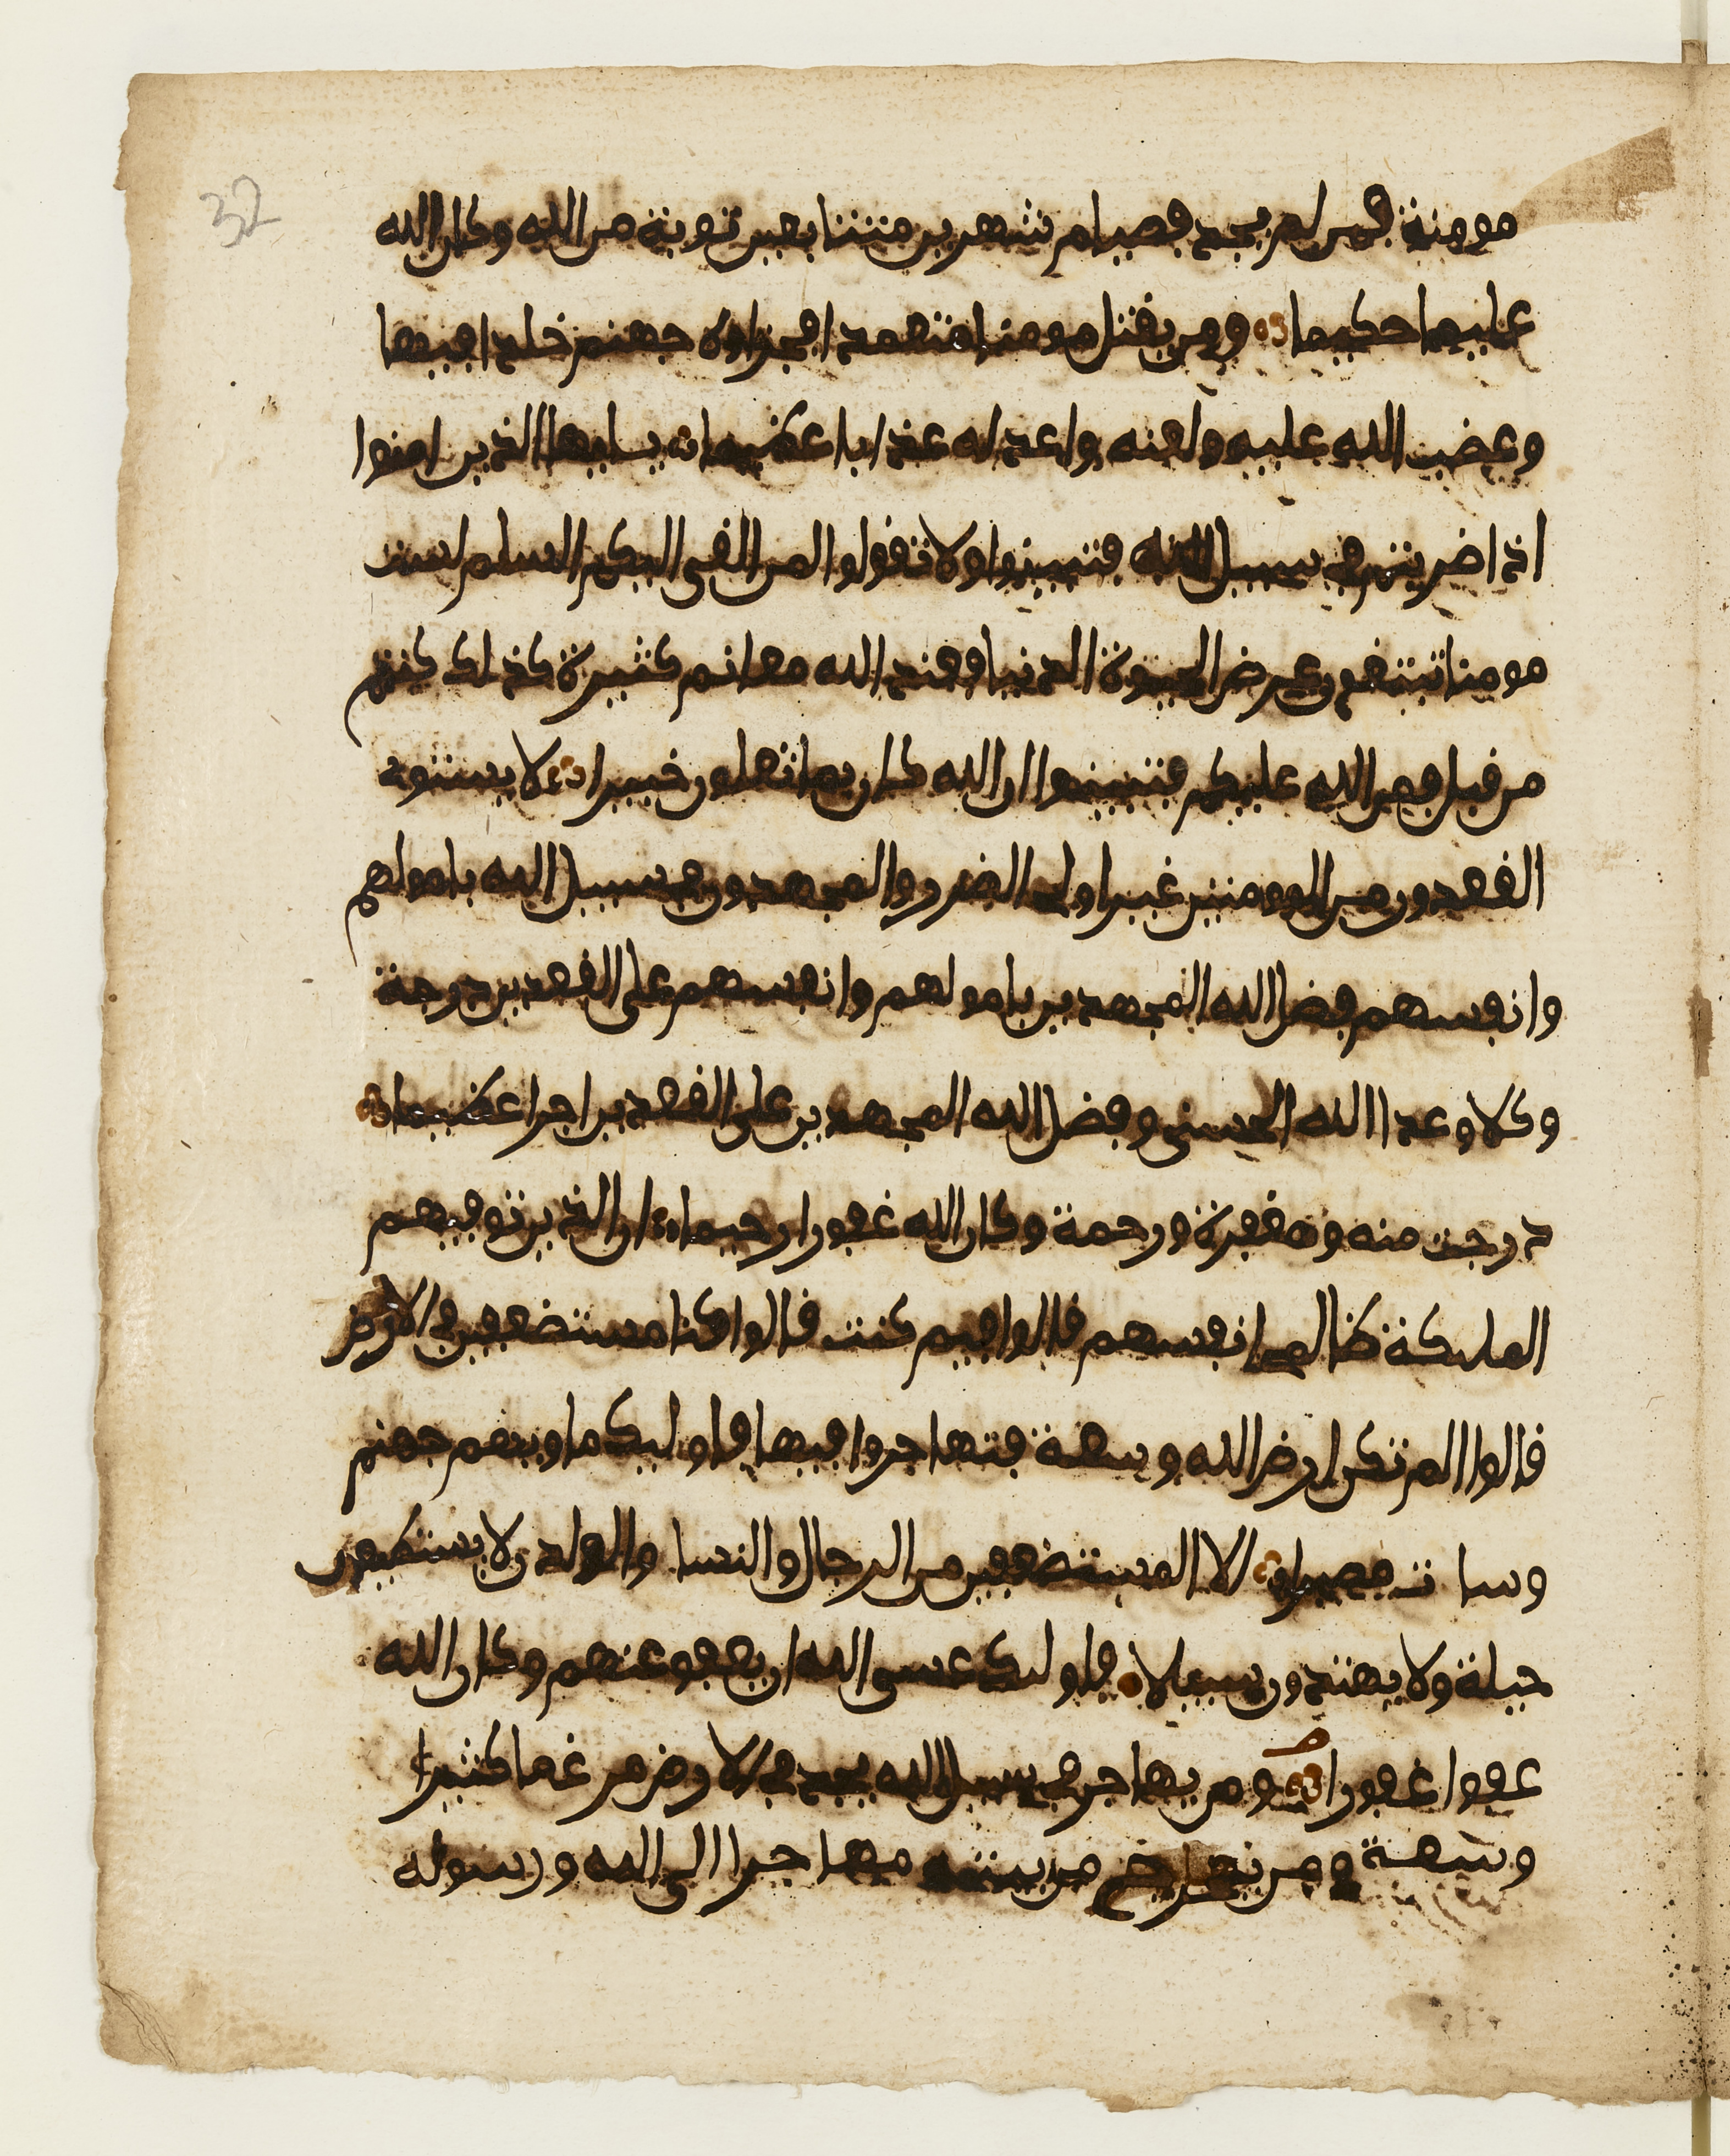 32
مومنة فمن لم يجد فصيام شهرين متتابعين توبة من الله وكان الله
عليما حكيما ومن يقتل مومنا متعمدا فجزاوه جهنم خلدا فيها
وغضب الله عليه ولعنه واعد له عذابا عظيما يايها الذين امنوا
اذا ضربتم في سبيل الله فتبينوا ولا تقولوا لمن القى اليكم السلم لست
مومنا تبتغون عرض الحيوة الدنيا فعند الله مغانم كثيرة كذلك كنتم
من قبل فمن الله عليكم فتبينوا ان الله كان بما تعملون خبيرا لا يستوى
القعدون من المومنين غير اولى الضرر والمجهدون في سبيل الله بامولهم
وانفسهم فضل الله المجهدين بامولهم وانفسهم على القعدين درجة
وكلا وعد الله الحسنى وفضل الله المجهدين على القعدين اجرا عظيما
درجت منه ومغفرة ورحمة وكان الله غفورا رحيما ان الذين توفيهم
المليكة ظالمى انفسهم قالوا فيم كنتم قالوا كنا مستضعفين في الارض
قالوا الم تكن ارض الله وسعة فتهاجروا فيها فاوليك ماويهم جهنم
وسات مصيرا الا المستضعفين من الرجال والنسا والولدن لا يستطيعون
حيلة ولا يهتدون سبيلا فاوليك عسى الله ان يعفو عنهم وكان الله
عفوا غفورا ومن يهاجر في سبيل الله يجد في الارض مرغما كثيرا
وسعة ومن يخرج من بيته مهاجرا الى الله ورسوله